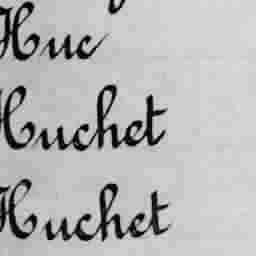 Huc
Huchet
Huchet